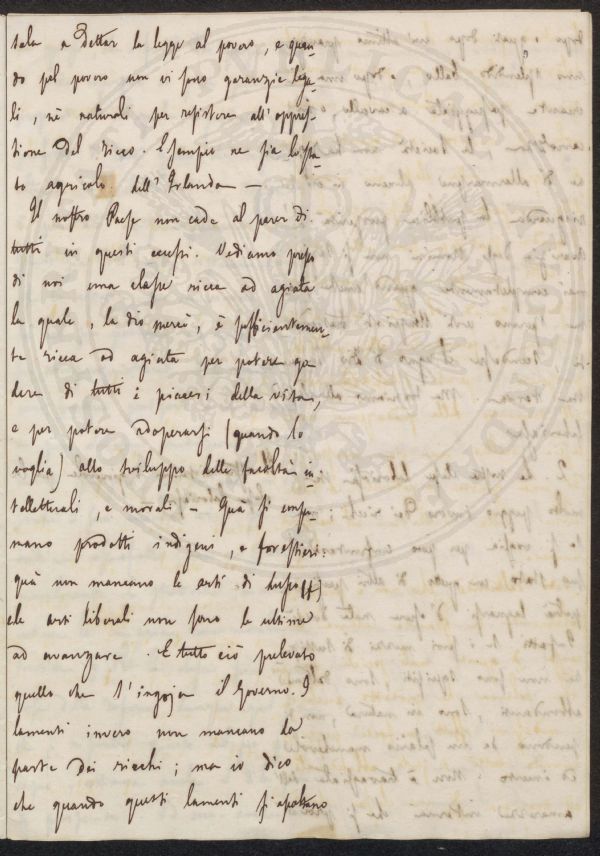 tale a dettar la legge al povero, e quan-
do pel povero non vi sono garanzie lega-
li, nè naturali per resistere all'oppres-
sione del ricco. Esempio ne sia lo sta-
to agricolo dell'Irlanda —
Il nostro Paese non cade al parer di
tutti in questi eccessi. Vediamo presso
di noi una classe ricca ad agiata
la quale, la dio mercè, è sufficientemen-
te ricca ad agiata per potere go
dere di tutti i piaceri della vita,
e per potere adoperarsi (quando lo
voglia) allo sviluppo delle facoltà in-
tellettuali, e morali — Quà si consu-
mano prodotti indigeni, e forestieri:
quà non mancano le arti di lusso
e le arti liberali non sono le ultime
ad avanzare. E tutto ciò prelevato
quello che s'ingoja il Governo. I
lamenti invero non mancano da
parte dei ricchi; ma io dico
che quando questi lamenti si ascoltano